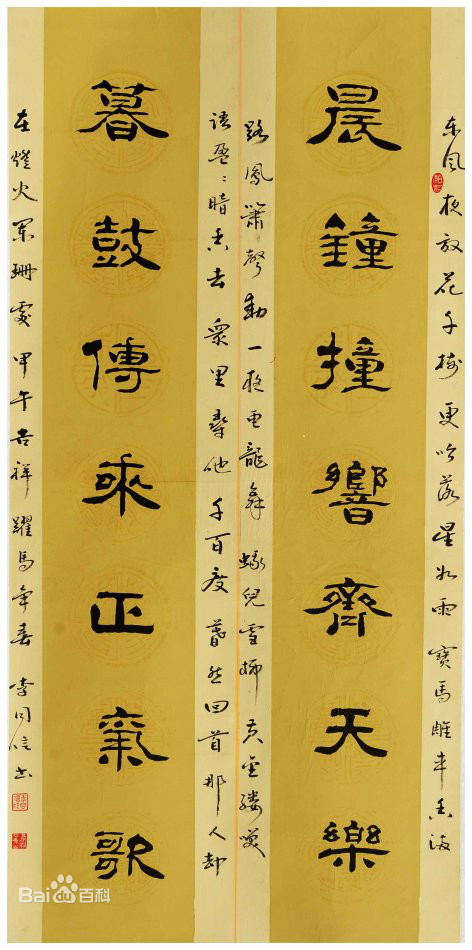 东风夜放花千树更吹落星如雨寶馬雕车香满
晨鐘撞響齊天樂
路鳳簫聲動一夜鱼龍舞蛾兒雪柳黄金縷笑
語盈〻暗香去眾里尋他千百度蓦然回首那人却
暮鼓傳来正氣歌
在燈火阑珊處甲午吉祥躍馬年春李同信书
Bai百科